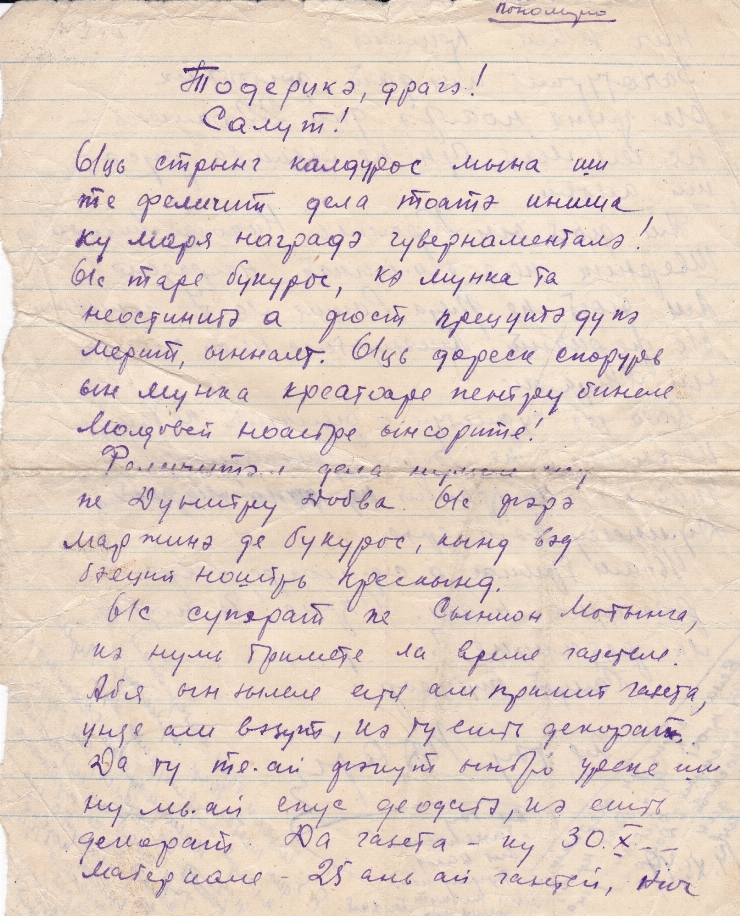 Тодерикэ, драгэ!
Салут!
Ыць стрынг калдурос мына ши
те феличит дела тоатэ инима
ку маря наградэ гувернаменталэ!
Ыс таре букурос, кэ мунка та
неостинитэ а фост прецуитэ дупэ
мерит, ынналт. Ыць дореск спорурь
ын мунка креатоаре пентру бинеле
Молдовей ноастре ынсорите!
дела
пе Думитру Ыс фэрэ
марӂинэ де букурос, кынд вэд
бэеций ноштрь крескынд.
Ыс супэрат пе Сымион Мотынга,
кэ нумь тримете ла време газетеле.
Абя ын зылеле естя ам примит газета,
унде ам вэзут, кэ ту ешть декорат.
Да ту те-ай фэкут ши
ну мь-ай спус деодатэ, кэ ешть
декорат. Да газета - ку 30.X -
материале - 25 ань ай газетей,